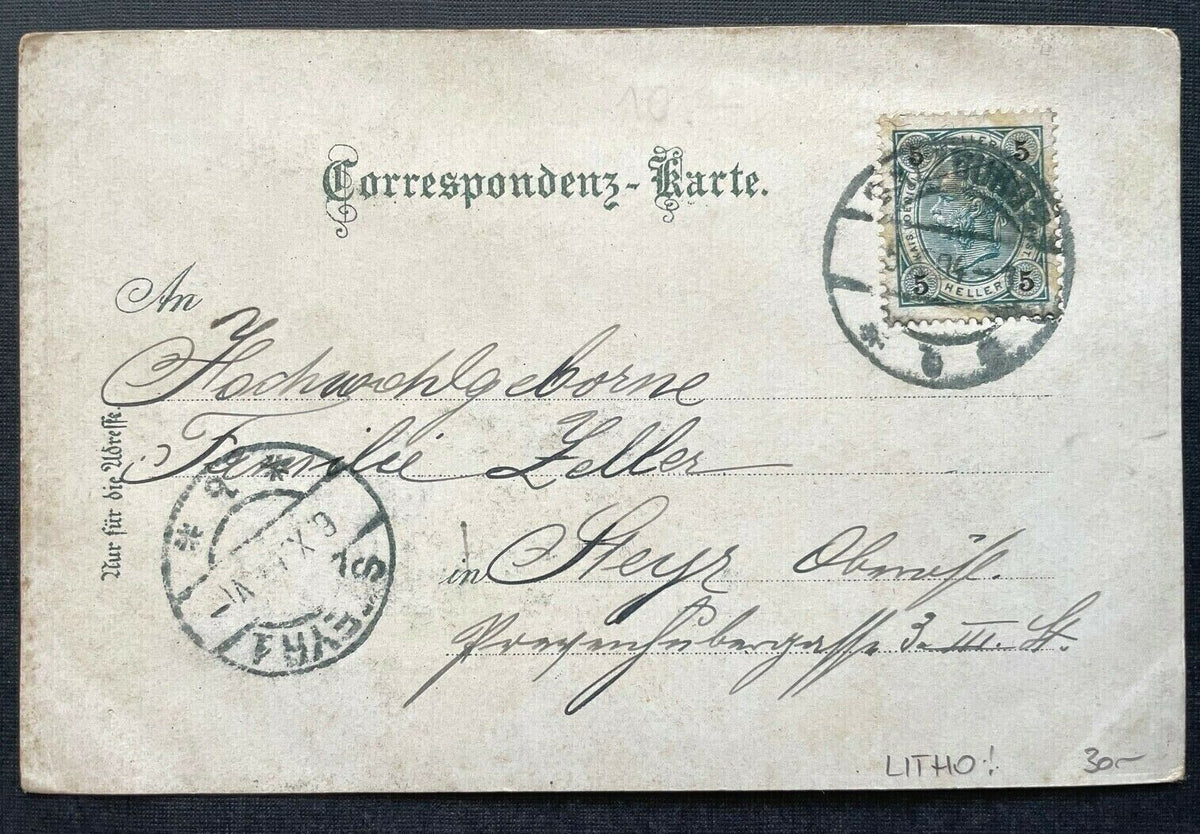 Correspondenz-Karte.
5 HELLER 5
5 HELLER 5
An
Hochwohlgeborne
Familie Zeller
in Steyr Oberöst.
3. III. St.
Nur für die Adresse.
STEYR 1
LITHO! 30-